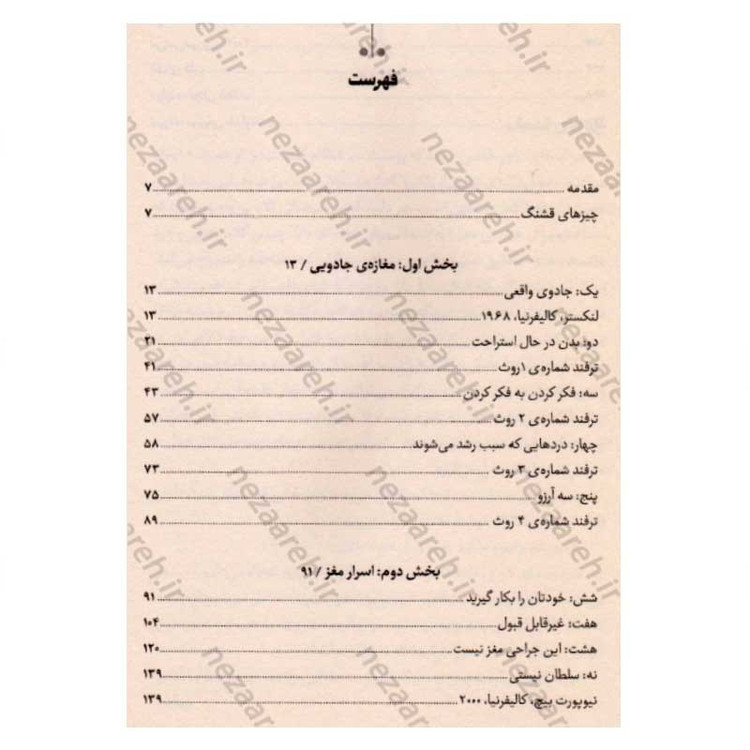 فهرست
مقدمه ........ ۷
چیزهای قشنگ ........ ۷
بخش اول: مغازه‌ی جادویی / ۱۳
یک: جادوی واقعی ........ ۱۳
لنکستر، کالیفرنیا، ۱۹۶۸ ........ ۱۳
دو: بدن در حال استراحت ........ ۲۱
ترفند شماره‌ی ۱ روث ........ ۴۱
سه: فکر کردن به فکر کردن ........ ۴۳
ترفند شماره‌ی ۲ روث ........ ۵۷
چهار: دردهایی که سبب رشد می‌شوند ........ ۵۸
ترفند شماره‌ی ۳ روث ........ ۷۳
پنج: سه آرزو ........ ۷۵
ترفند شماره‌ی ۴ روث ........ ۸۹
بخش دوم: اسرار مغز / ۹۱
شش: خودتان را بکار گیرید ........ ۹۱
هفت: غیرقابل قبول ........ ۱۰۴
هشت: این جراحی مغز نیست ........ ۱۲۰
نه: سلطان نیستی ........ ۱۳۹
نیوپورت بیچ، کالیفرنیا، ۲۰۰۰ ........ ۱۳۹
nezaareh.ir